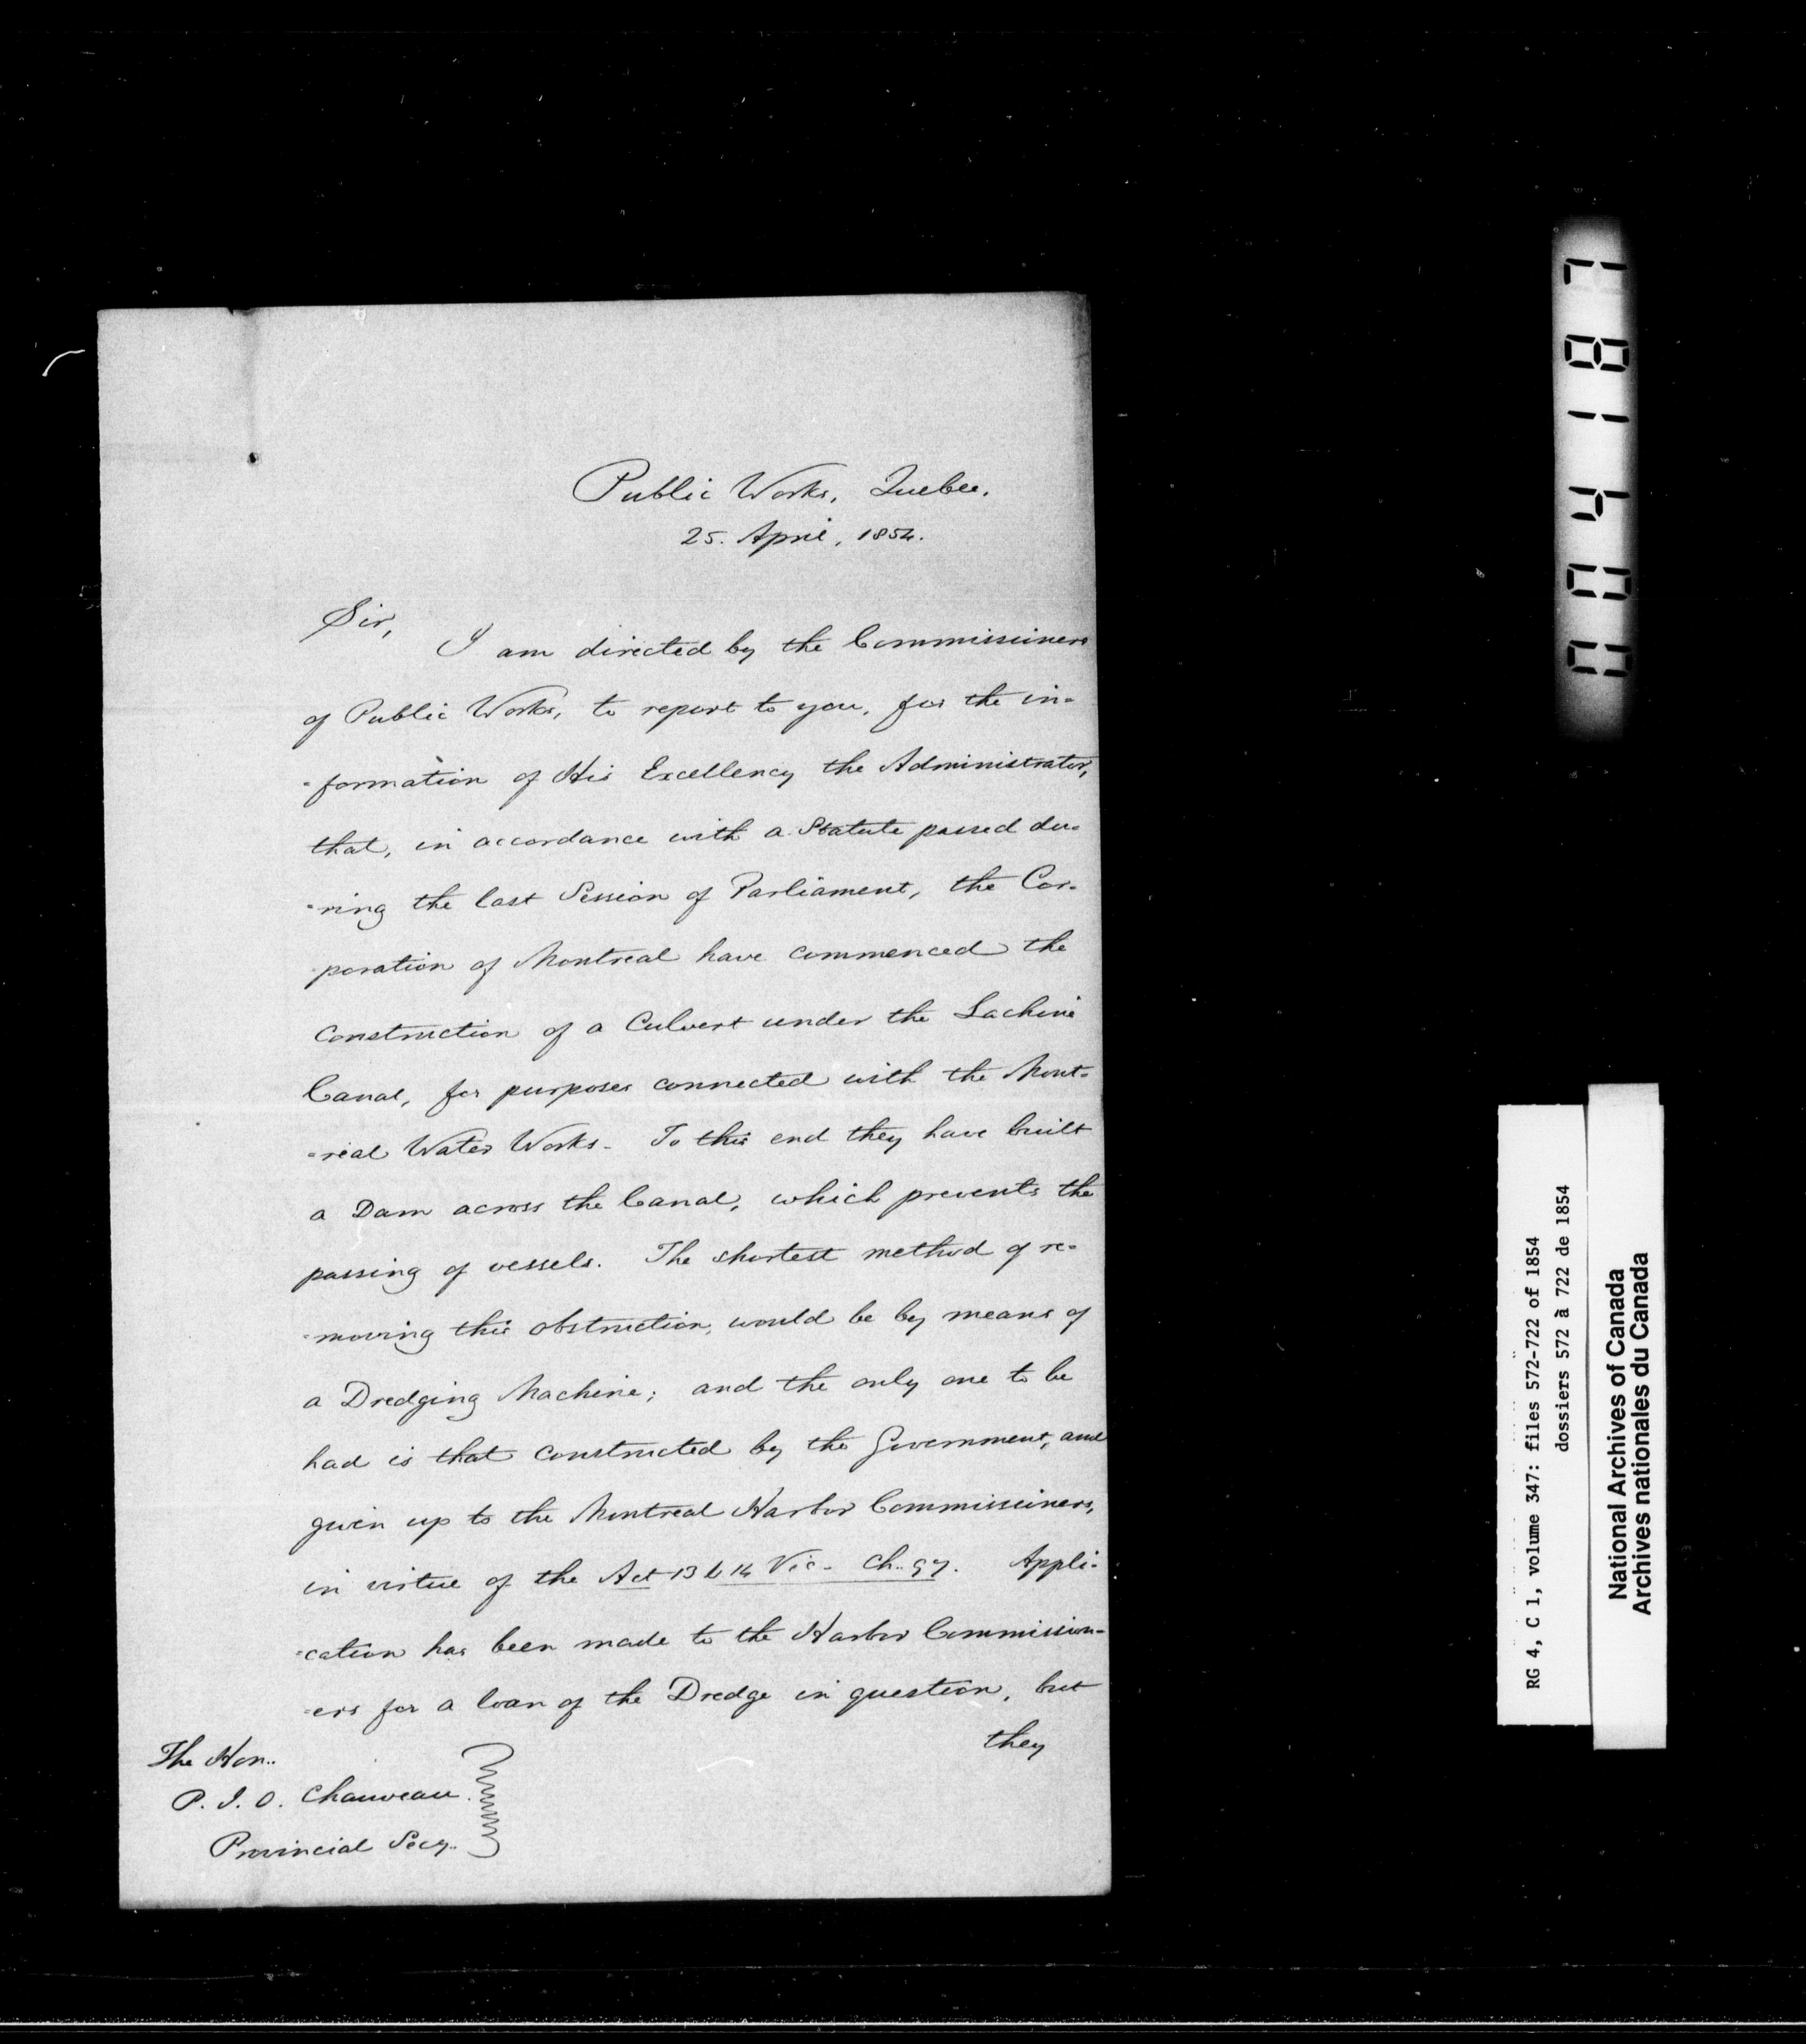 Public Works, Quebec.
25. April, 1854.
Sir,
I am directed by the Commissioners
of Public Works, to report to you, for the in-
-formation of His Excellency the Administrator,
that, in accordance with a Statute passed du-
-ring the last Session of Parliament, the Cor-
poration of Montreal have commenced the
Construction of a Culvert under the Lachine
Canal, for purposes connected with the Mont-
-real Water Works - To this end they have built
a Dam across the Canal, which prevents the
passing of vessels. The shortest method of re-
-moving this obstruction, would be by means of
a Dredging Machine; and the only one to be
had is that constructed by the Government, and
given up to the Montreal Harbor Commissioners,
in virtue of the Act 13 & 14 Vic - Ch. 97. Appli-
-cation has been made to the Harbor Commission-
-ers for a loan of the Dredge in question, but
they
The Hon..
P. J. O. Chauveau.
Provincial Secy.
001187
RG 4, C 1, volume 347: files 572-722 of 1854
dossiers 572 à 722 de 1854
National Archives of Canada
Archives nationales du Canada